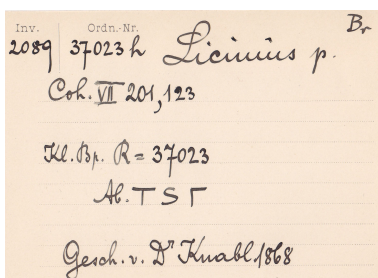 Inv. Ordn.-Nr. Br
2089 37023h Licinius p.
Coh. VII 201,123
Kl. Br. R = 37023
Ab. T S Γ
Gesch. v. Dr Knabl 1868